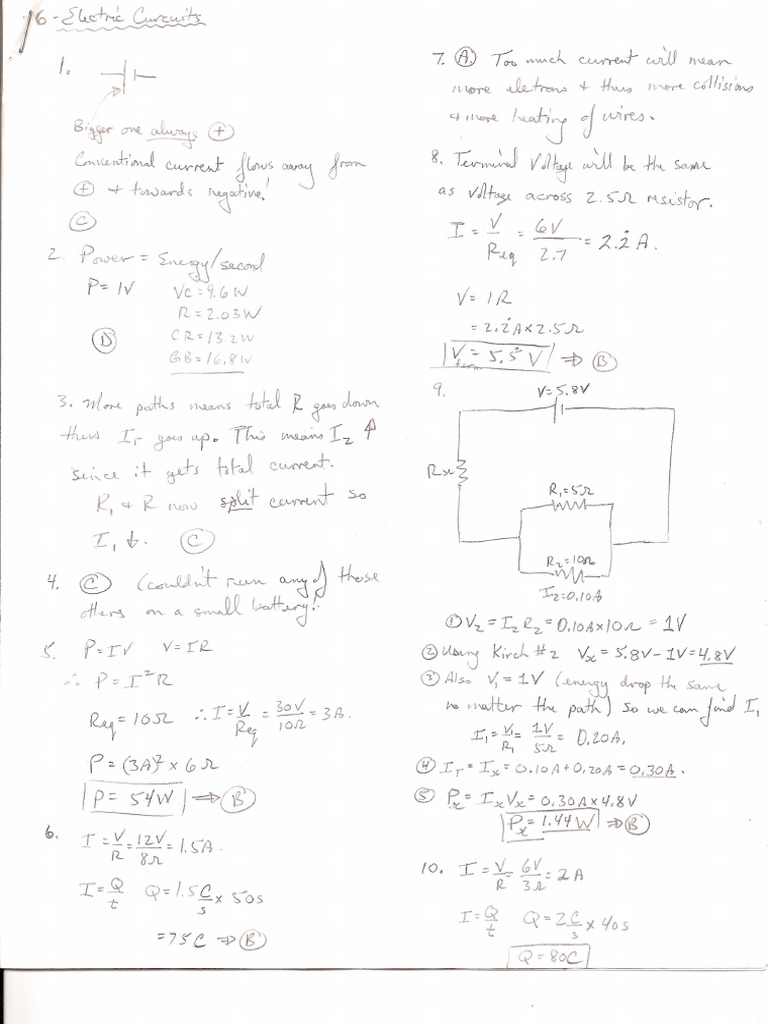 6 - Electric Curcuits
1.
Bigger one always +
Conventional current flows away from
+ + towards negative!
C
2. Power = Energy/second
P = IV
VC = 9.6W
R = 2.03W
D
CR = 13.2W
GB = 16.8W
3. More paths means total R goes down
thus IT goes up. This means I2 ↑
since it gets total current.
R1 + R now split current so
I1 ↓. C
4. C (couldn't run any of those
others on a small battery!
5. P = IV V = IR
∴ P = I²R
Req = 10Ω ∴ I = V/Req = 30V/10Ω = 3A.
P = (3A)² × 6Ω
P = 54W ⇒ B
6. I = V/R = 12V/8Ω = 1.5A.
I = Q/t Q = 1.5 C/s × 50s
= 75C ⇒ B
7. A. Too much current will mean
more eletrons + thus more collisions
+ more heating of wires.
8. Terminal Voltage will be the same
as voltage across 2.5Ω resistor.
I = V/Req = 6V/2.7 = 2.2̇ A.
V = IR
= 2.2̇A × 2.5Ω
Vterm = 5.5̇ V ⇒ B
9.
V = 5.8V
Rx
R1 = 5Ω
R2 = 10Ω
I2 = 0.10A
① V2 = I2R2 = 0.10A × 10Ω = 1V
② Using Kirch #2 Vx = 5.8V - 1V = 4.8V
③ Also V1 = 1V (energy drop the same
no matter the path) so we can find I1
I1 = V1/R1 = 1V/5Ω = 0.20A.
④ IT = Ix = 0.10A + 0.20A = 0.30A.
⑤ Px = IxVx = 0.30A × 4.8V
Px = 1.44W ⇒ B
10. I = V/R = 6V/3Ω = 2A
I = Q/t Q = 2 C/s × 40s
Q = 80C